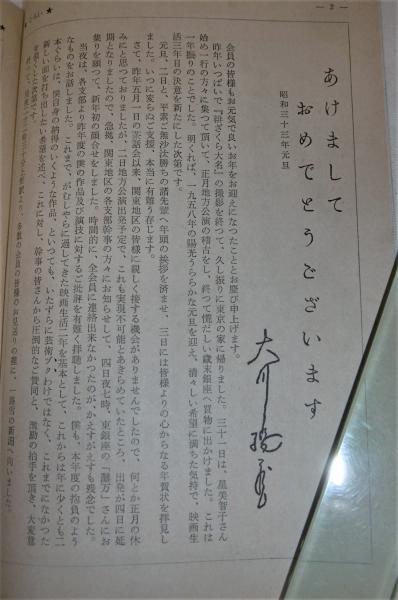 — 2 —
あけまして
おめでとうございます
昭和三十三年元旦
会員の皆様もお元気で良いお年をお迎えになつたこととお慶び申上げます。
昨年いつぱいで『緋ざくら大名』の撮影を終つて、久し振りに東京の家に帰りました。三十一日は、星美智子さん
始め一行の方々に集つて頂いて、正月地方公演の稽古をし、終つて慌だしい歳末銀座へ買物に出かけました。これは
一年振りのことでした。明くれば、一九五八年の陽光うららかな元旦を迎え、清々しい希望に満ちた気持で、映画生
活三年目の決意を新たにした次第です。
元旦、二日と、平素ご無沙汰勝ちの諸先輩へ年頭の挨拶を済ませ、三日には皆様よりの心からなる年賀状を拝見し
ました。いつに変らぬご支援、本当に有難う存じます。
さて、昨年五月一日の お話会以来、関東地区の皆様に親しく接する機会がありませんでしたので、何とか正月の休
みにと思つておりましたが、二日地方公演出発予定で、これも実現不可能とあきらめていたところ、出発が四日に延
期となりましたので、急拠、関東地区の各支部幹事の方々にお知らせして、四日夜七時、東銀座の「灘万」さんにお
集りを願つて、新年初の顔合せをしました。時間的に、全会員に連絡出来なかつたのが、かえすがえすも残念でした。
当夜は、各支部より昨年度の僕の作品及び演技に対するご批評を有難く拝聴しました。僕も、本年度の抱負のよう
なものをお話しました。これまで、がむしやらに過してきた映画生活二年を基本として、これからは年に少くとも二
本ぐらいは、僕自身の納得のいくような作品、といつても、いたずらに芸術ブるわけではなく、これまでになかつた
新しい面を打ち出したい希望を述べ、これに対し、幹事の皆さんから圧倒的なご賛同と、激励の拍手を頂き、大変意
を強くした次第です。
会員の皆様のお見送りの裡に、一路雪の新潟へ向いました。